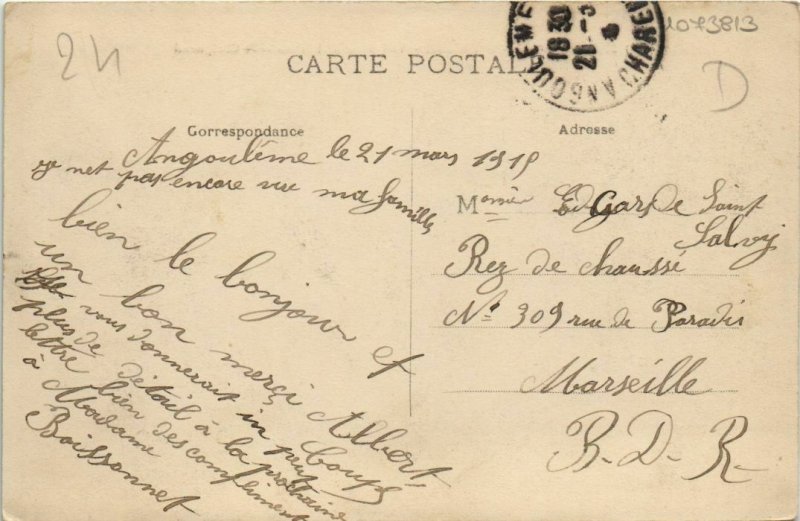 24
1073813
D
CARTE POSTALE
ANGOULEME
CHARENTE
1830
21-3
Correspondance
Adresse
Angoulême le 21 mars 1915
je net pas encore vu ma familles
bien le bonjour et
un bon merçi Albert
vous donnerait in peut
plus de détail à la prochaine
lettre bien des compliment
à Madame
Boissonnet
Monsieur Edgar de Saint
Salvy
Rez de chaussé
No 309 rue de Paradis
Marseille
B-D-R-